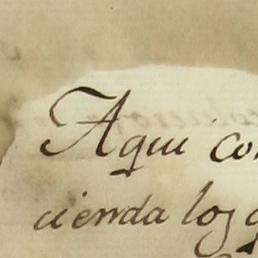 Aqui co
cienda los q